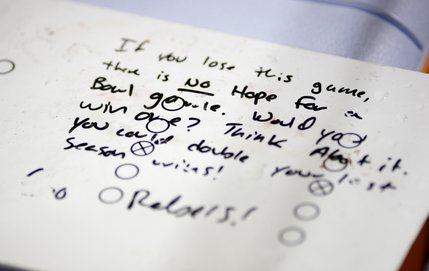 If you lose this game,
there is NO Hope For a
Bowl game. Would you
win one? Think About it.
You could double your last
season wins!
Rebels!